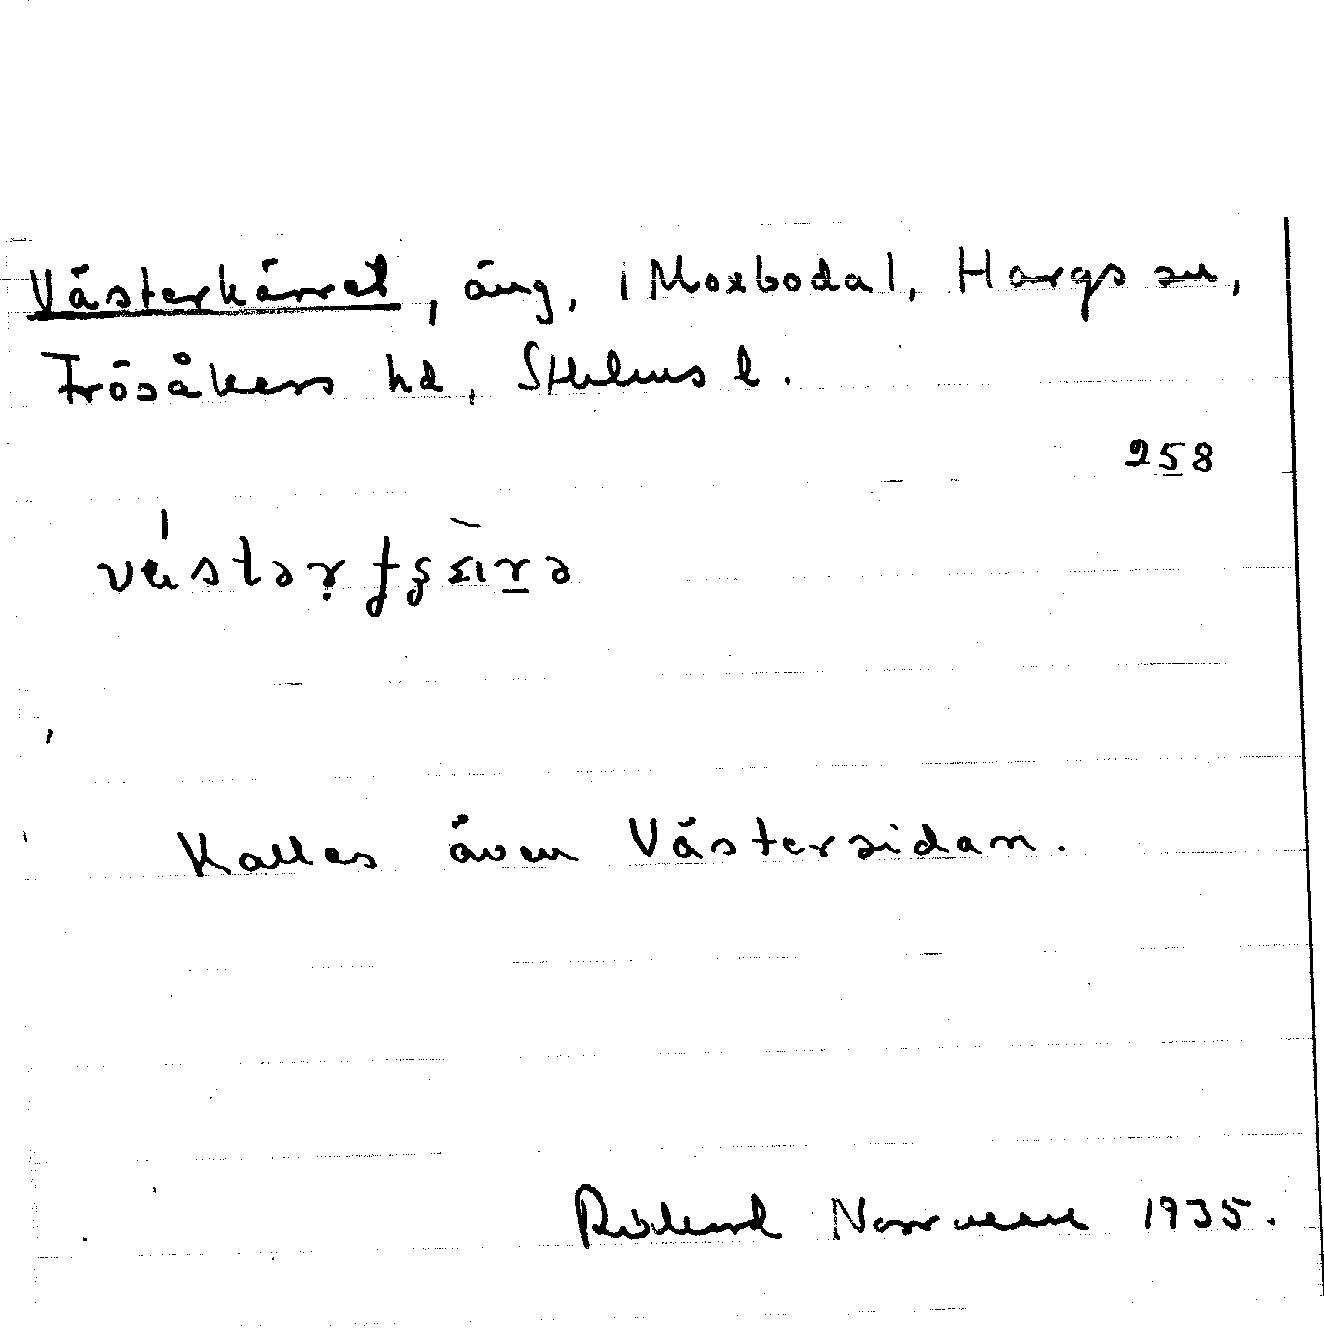 Västerkärret, äng, i Moxbodal, Hargs sn,
Frösåkers hd, Sthlms l.
258
Kallas även Västersidan.
Norrman 1935.